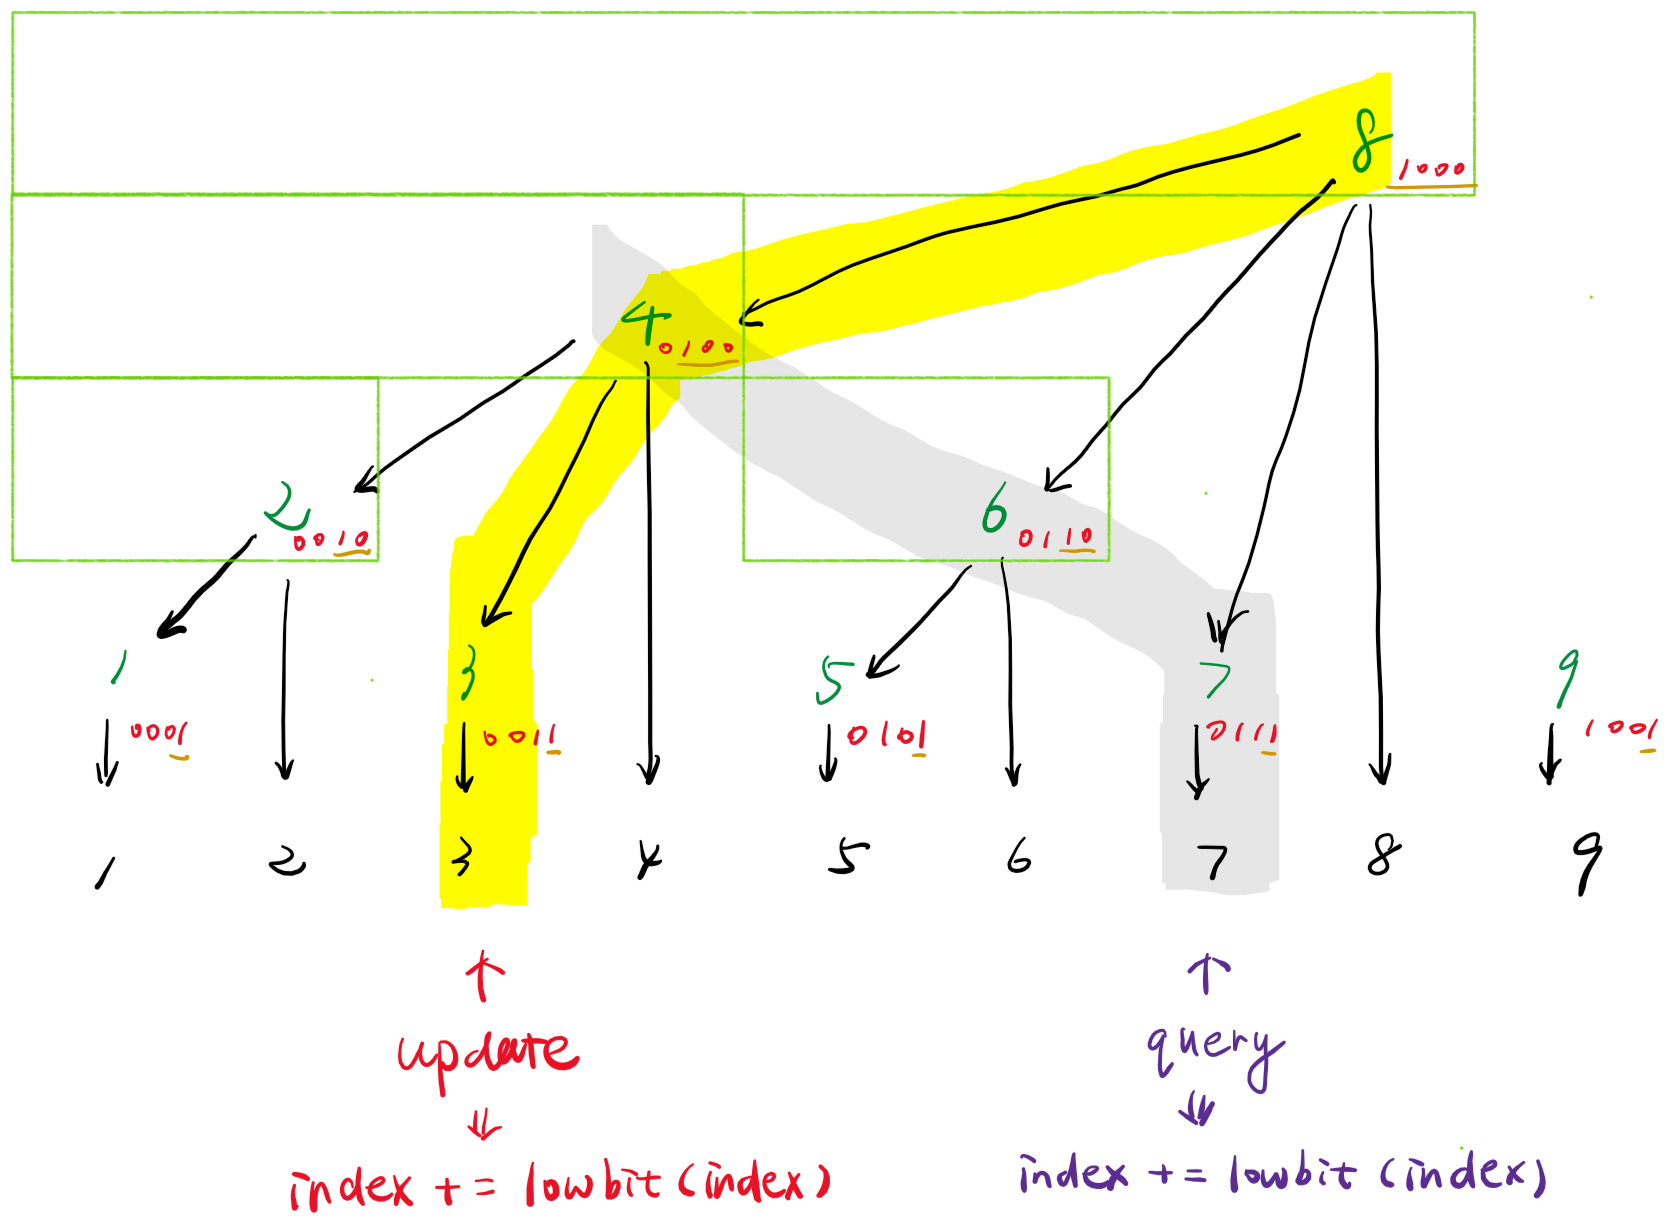 8
1000
4
0100
2
0010
6
0110
1
0001
3
0011
5
0101
7
0111
9
1001
1 2 3 4 5 6 7 8 9
update
query
index += lowbit(index)
index += lowbit(index)